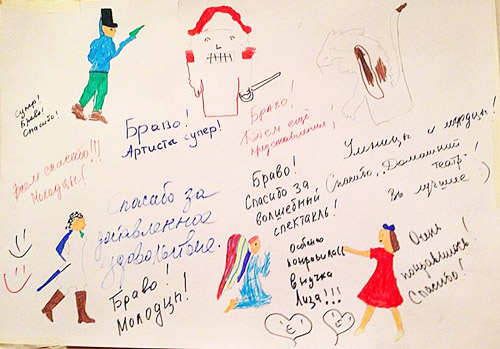 Супер!
Браво!
Спасибо!
Браво!
Артисты супер!
Браво!
Ждём ещё
представления!
Умницы и молодцы!
Всем спасибо!!!
Молодцы!
Спасибо за
доставленное
удовольствие.
Браво!
Спасибо за
волшебный
спектакль!
Спасибо, „Домашний
театр"!
Вы лучшие :)
Браво
Молодцы!
Особенно
понравилась
внучка
Лиза!!!
Очень
понравилось!
Спасибо!